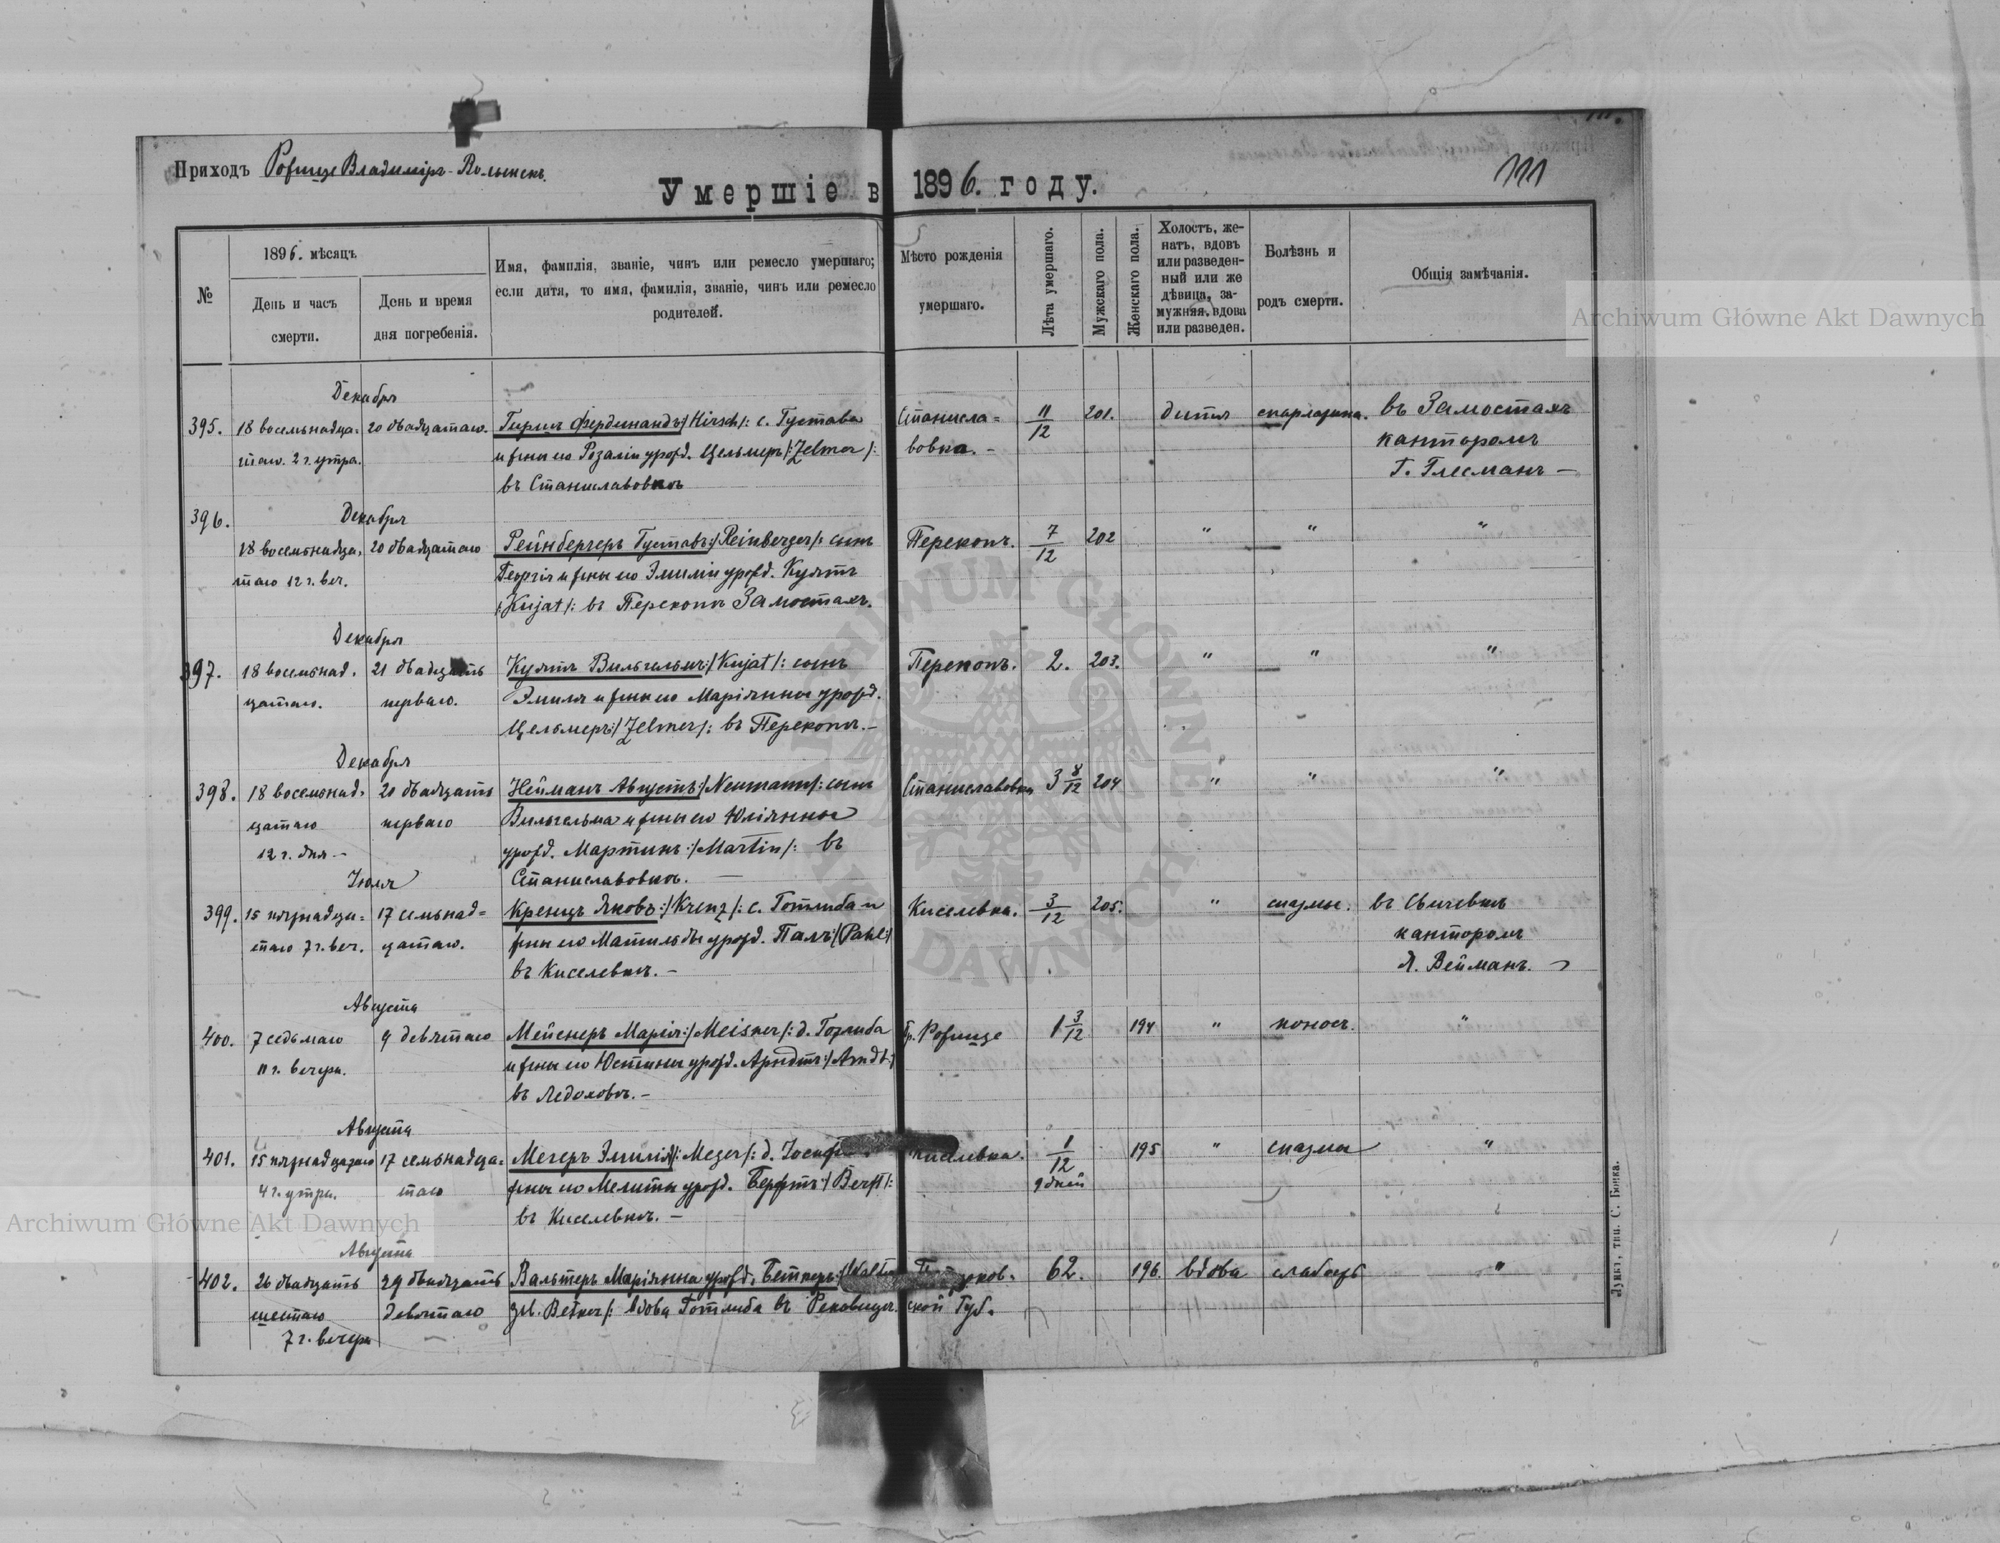 Приходъ Рожище Владиміръ-Волынскъ.
111
Умершіе въ 1896. году.
№
1896. мѣсяцъ
День и часъ смерти.
День и время дня погребенія.
Имя, фамилія, званіе, чинъ или ремесло умершаго;
если дитя, то имя, фамилія, званіе, чинъ или ремесло
родителей.
Мѣсто рожденія
умершаго.
Лѣта умершаго.
Мужскаго пола.
Женскаго пола.
Холостъ, же-
натъ, вдовъ
или разведен-
ный или же
дѣвица, за-
мужняя, вдова
или разведен.
Болѣзнь и
родъ смерти.
Общія замѣчанія.
Archiwum Główne Akt Dawnych
Декабря
395. 18 восемьнадца- 20 двадцатаго. Гиршъ Фердинандъ /:Hirsch:/ с. Густава Станисла- 11/12 201. дитя скарлатина. въ Замостахъ
таго. 2 г. утра. и жены его Розаліи урожд. Цельмеръ /:Zelmer/: вовка. - канторомъ
въ Станиславовкѣ Г. Глесманъ -
396. Декабря
18 восемьнадца, 20 двадцатаго Рейнбергеръ Густавъ:/Reinberger/: сынъ Перекопъ. 7/12 202 " " "
таго 12 г. веч. Георгія и жены его Эмиліи урожд. Куятъ
/:Kujat/: въ Перекопѣ Замостахъ.
Декабря
397. 18 восемьнад. 21 двадцать Куятъ Вильгельмъ:/Kujat/: сынъ Перекопъ. 2. 203. " " "
цатаго. перваго. Эмиля и жены его Маріянны урожд.
Цельмеръ:/Zelmer/: въ Перекопѣ. -
Декабря
398. 18 восемьнад. 20 двадцать Нейманъ Августъ:/Neumann/: сынъ Станиславовка 3 8/12 204 " " "
цатаго перваго Вильгельма и жены его Юліянны
12 г. дня - урожд. Мартинъ:/Martin/: въ
Іюля Станиславовкѣ. -
399. 15 пятнадца- 17 семьнад= Кренцъ Яковъ:/Krenz/: с. Готлиба и Киселевка. 3/12 205. " спазмы. въ Свичевкѣ
таго 7 г. веч. цатаго. жены его Матильды урожд. Палъ:/Pahl:/ канторомъ
въ Киселевкѣ. - Я. Вейманъ. -
Августа
400. 7 седьмаго 9 девятаго Мейснеръ Марія:/Meisner/: д. Готлиба Гр. Рожище 1 3/12 194 " поносъ. "
11 г. вечера. и жены его Юстины урожд. Арндтъ:/Arndt:/
въ Ледоховѣ. -
Августа
401. 15 пятнадцатаго 17 семьнадца= Мегеръ Эмилія/:Meger/: д. Киселевка. 1/12 195 " спазмы "
4 г. утра. таго жены его Мелиты урожд. Берфтъ:/Berft/: 9 дней
въ Киселевкѣ. -
Августа
402. 26 двадцать 29 двадцать Вальтеръ Маріянна урожд. Беткеръ:/ 62. 196. вдова слабость "
шестаго девятаго geb. Betker/: вдова Готлиба въ ской Губ.
7 г. вечера
Луцкъ, тип. С. Бокка.
Archiwum Główne Akt Dawnych
ARCHIWUM GŁÓWNE AKT DAWNYCH